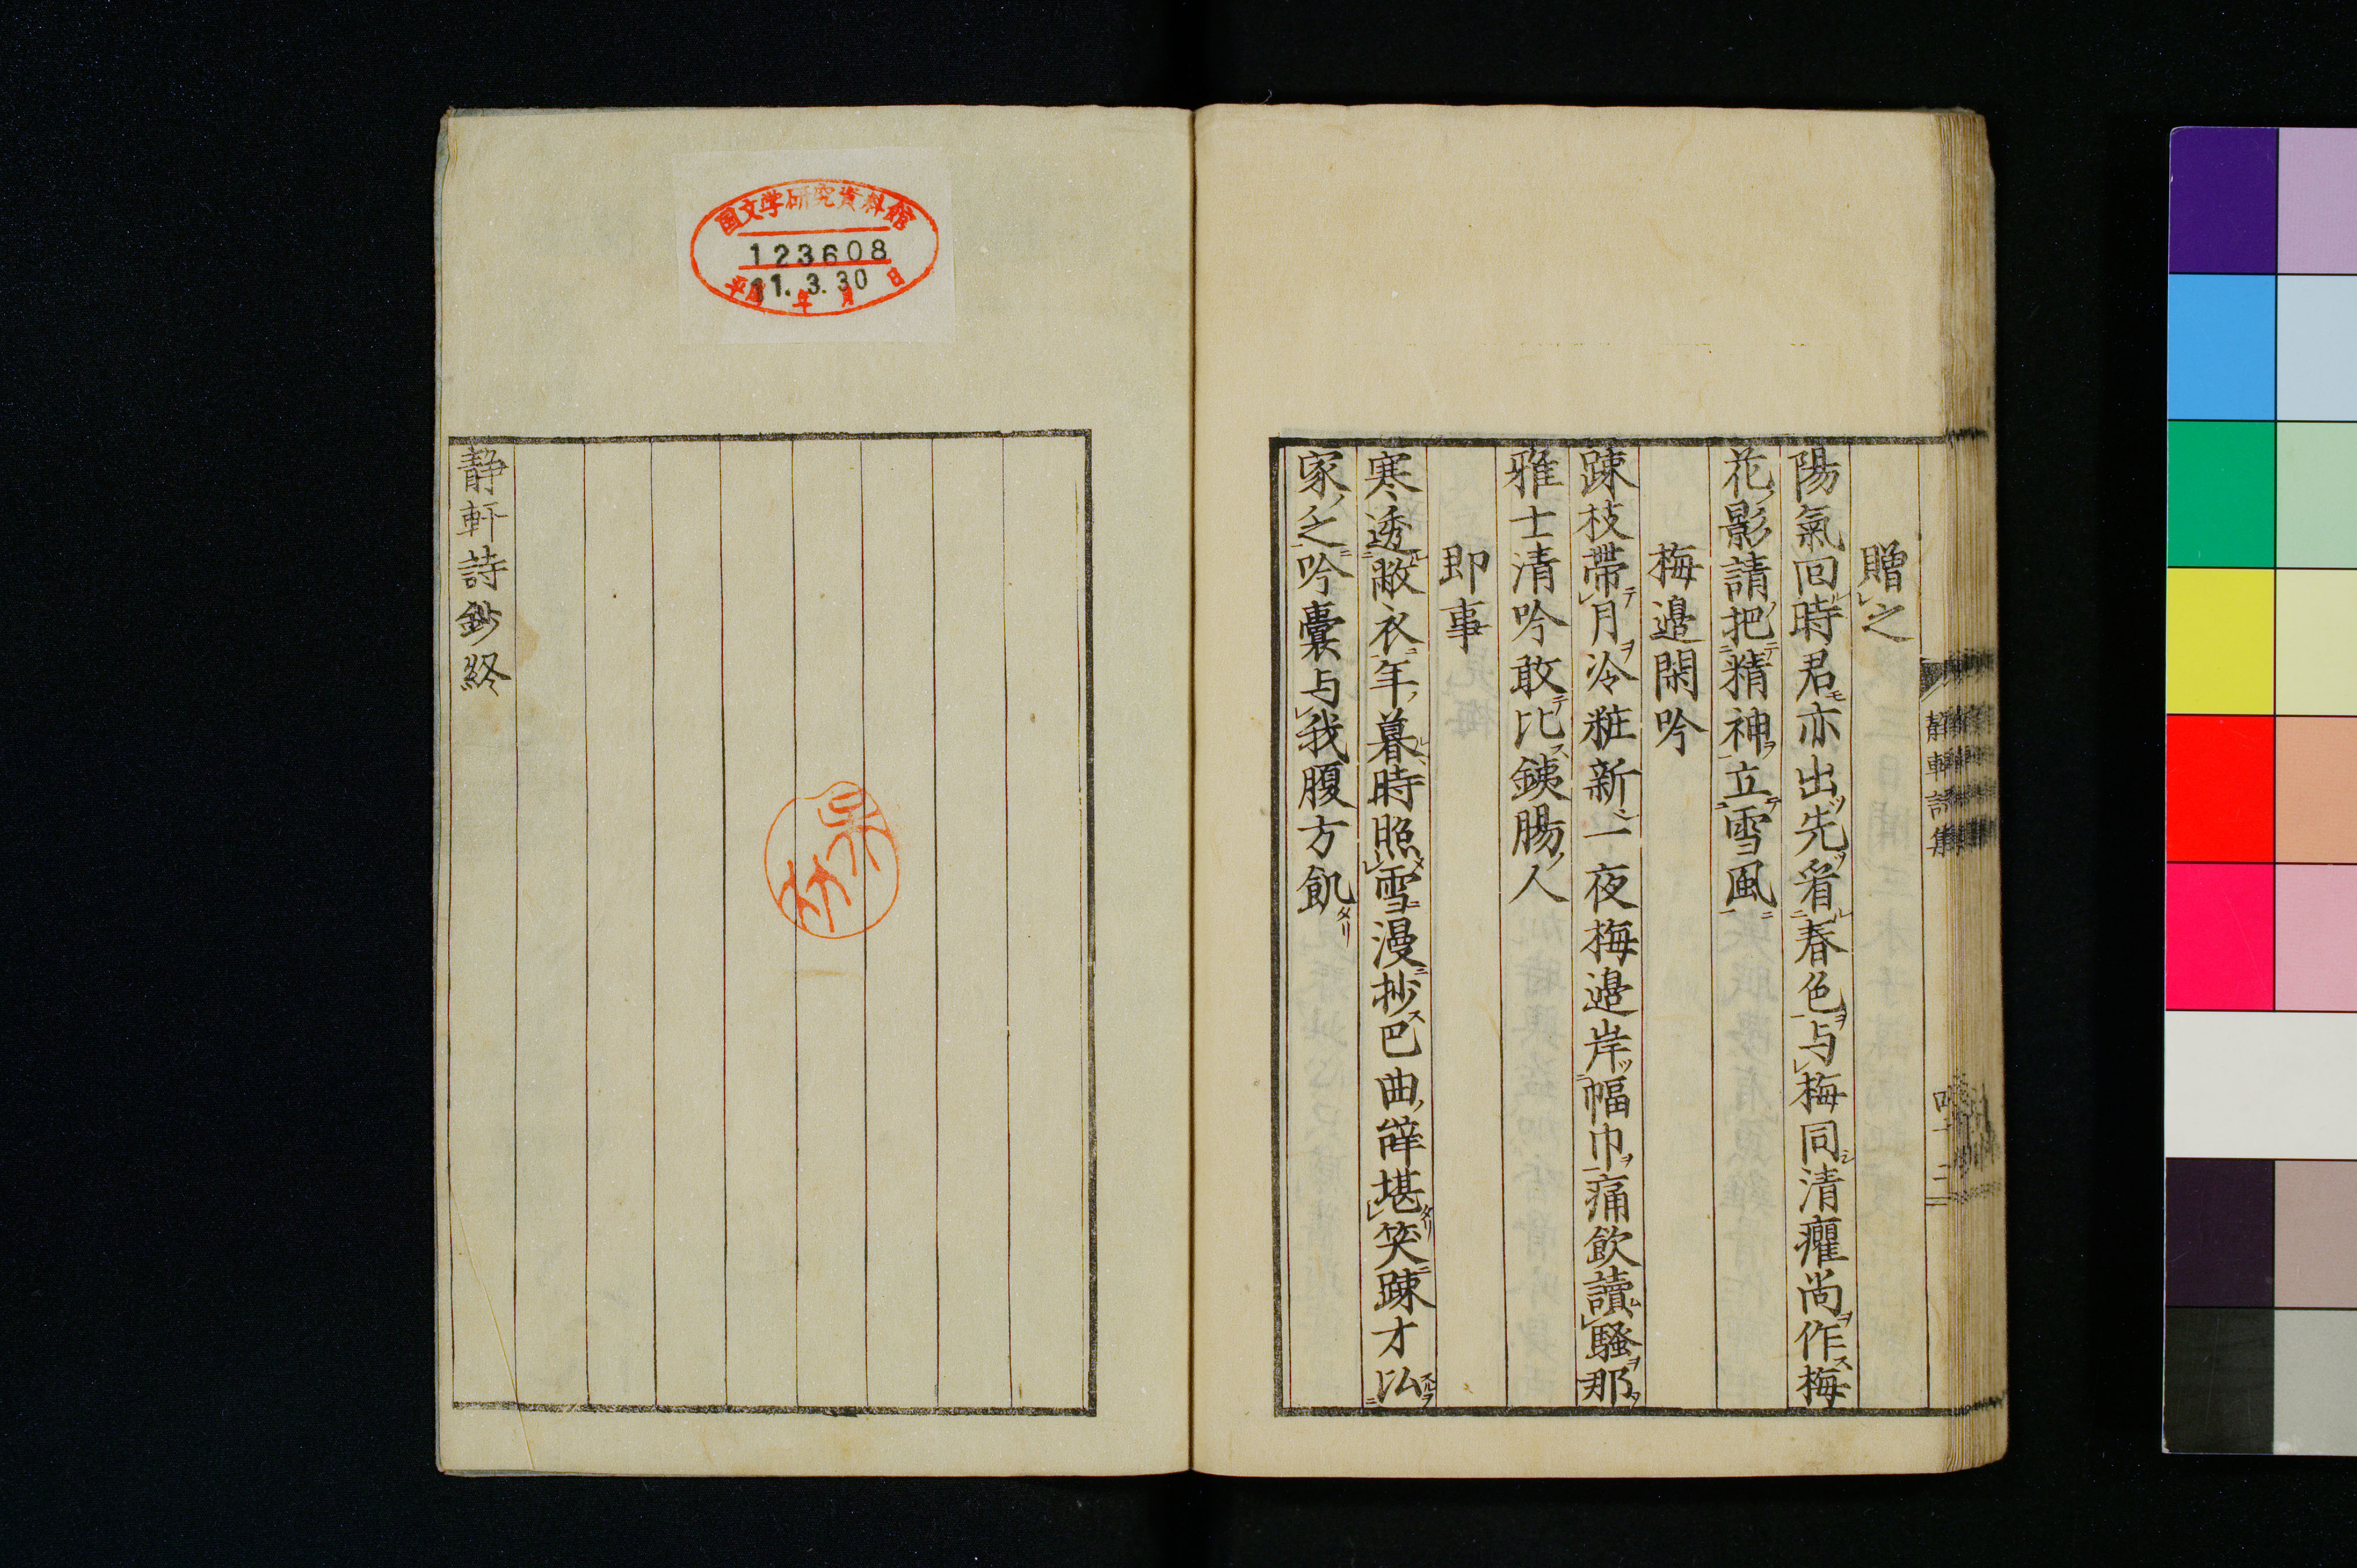 贈之
陽氣回時君亦出先看春色与梅同清癯尚作梅
花影請把精神立雪風
梅邉閑吟
踈枝帶月冷粧新一夜梅邉岸幅巾痛飲讀騷那
雅士清吟敢比銕腸人
即事
寒透敝衣年暮時照雪漫抄巴曲辞堪笑踈才泓
家之吟囊与我腹方飢
靜軒詩集
四十二
靜軒詩鈔終
国文学研究資料館
123608
平成11.3.30
年月日